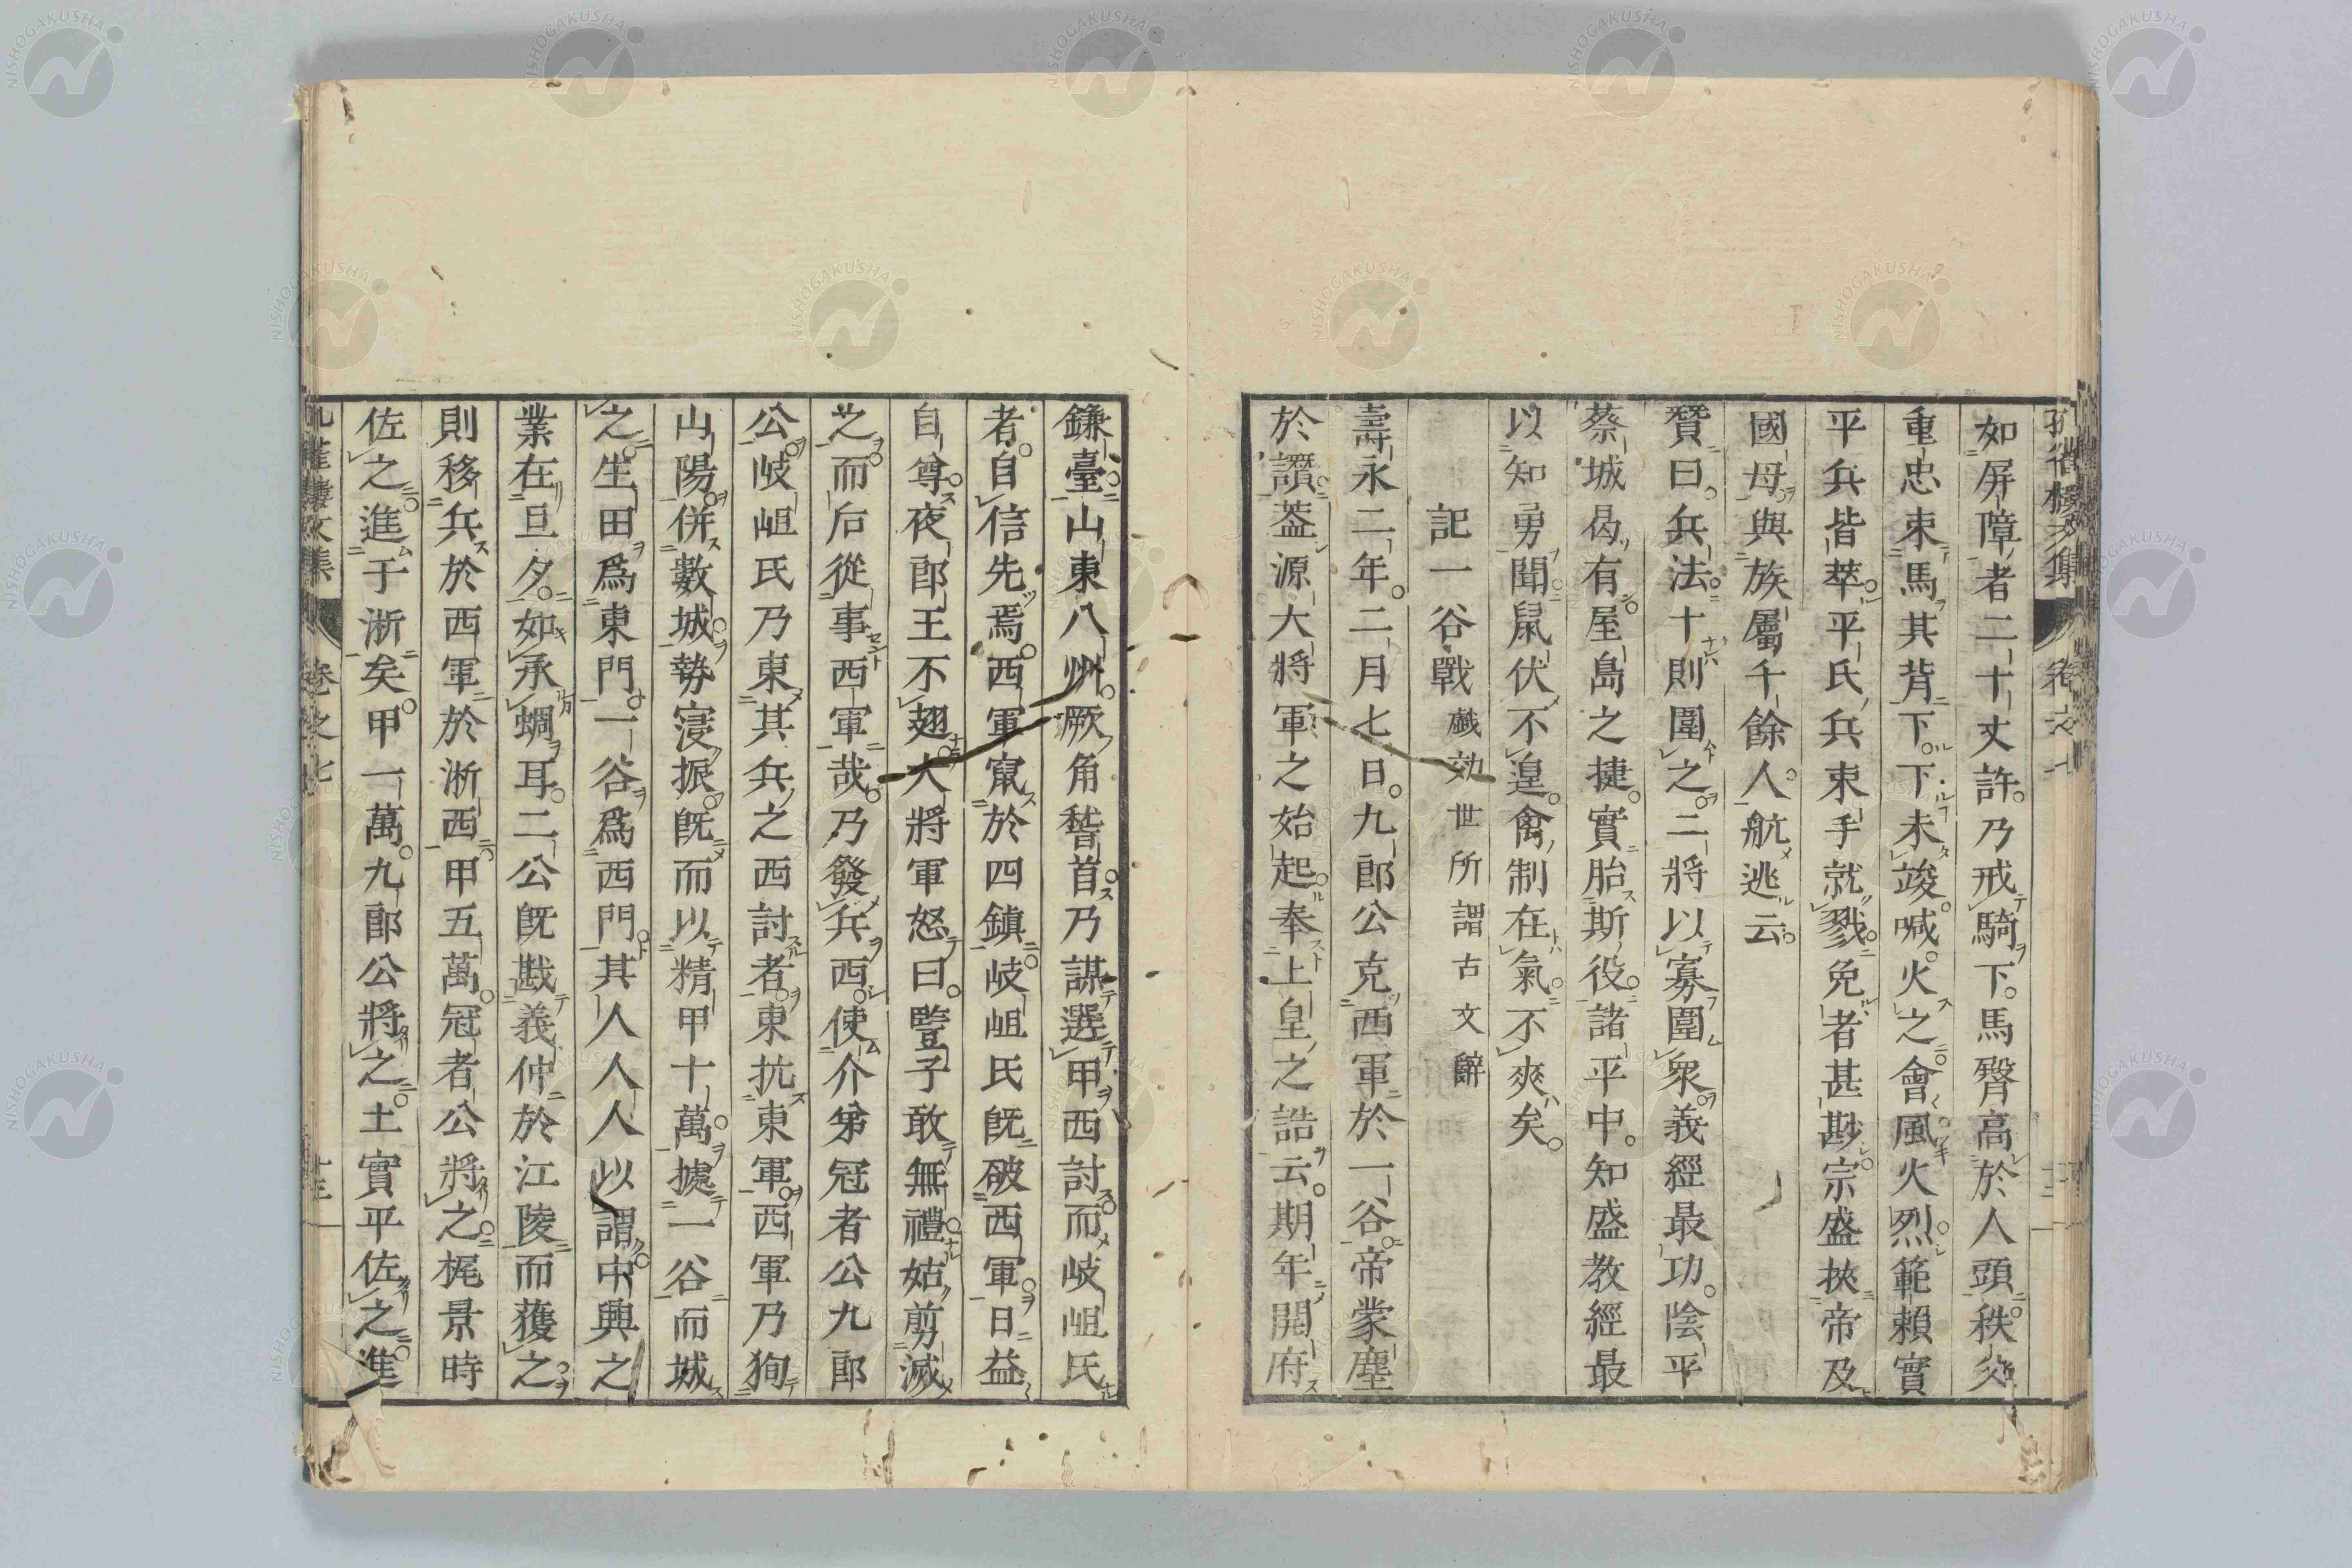 如屏障者二十丈許。乃戒騎下。馬臀高於人頭。秩父
重忠束馬其背下。下未竣。喊。火之。會風火烈。範賴實
平兵皆萃。平氏兵束手就戮。免者甚尠。宗盛挾帝及
國母與族屬千餘人。航逃云。
贊曰。兵法。十則圍之。二將以寡圍衆。義經最功。陰平
蔡城曷有。屋島之捷。實胎斯役。諸平中。知盛教經最
以知勇聞。鼠伏不遑。禽制在氣。不爽矣。
記一谷戰 戲効世所謂古文辭
壽永二年。二月七日。九郎公克西軍於一谷。帝蒙塵
於讚。蓋源大將軍之始起。奉上皇之誥云。期年開府
鎌臺。山東八州。厥角稽首。乃謀選甲西討。而岐岨氏
者。自信先焉。西軍竄於四鎮。岐岨氏既破西軍。日益
自尊。夜郎王不翅。大將軍怒曰。豎子敢無禮。姑剪滅
之。而后從事西軍哉。乃發兵西。使介弟冠者公九郎
公。岐岨氏乃東其兵之西討者。東抗東軍。西軍乃狥
山陽。併數城。勢寖振。既而以精甲十萬。據一谷而城
之。生田爲東門。一谷爲西門。其人人人以謂。中興之
業在旦夕。如承蜩耳。二公既戡義仲於江陵而獲之
則移兵於西軍於淅西。甲五萬。冠者公將之。梶景時
佐之。進于淅矣。甲一萬。九郎公將之。土實平佐之。進
卷之七
十三